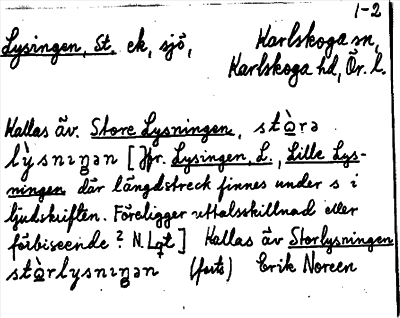 1-2
Lysingen, St. ek, sjö, Karlskoga sn,
Karlskoga hd, Ör. l.
Kallas äv. Store Lysningen, stὰ̱rə
lỳsnıŋən [Jfr. Lysingen, L., Lille Lys-
ningen där längdstreck finnes under s i
ljudskriften. Föreligger uttalsskillnad eller
förbiseende? N. Lqt] Kallas äv Storlysningen
stὰ̱rlysnıŋən (forts) Erik Noreen